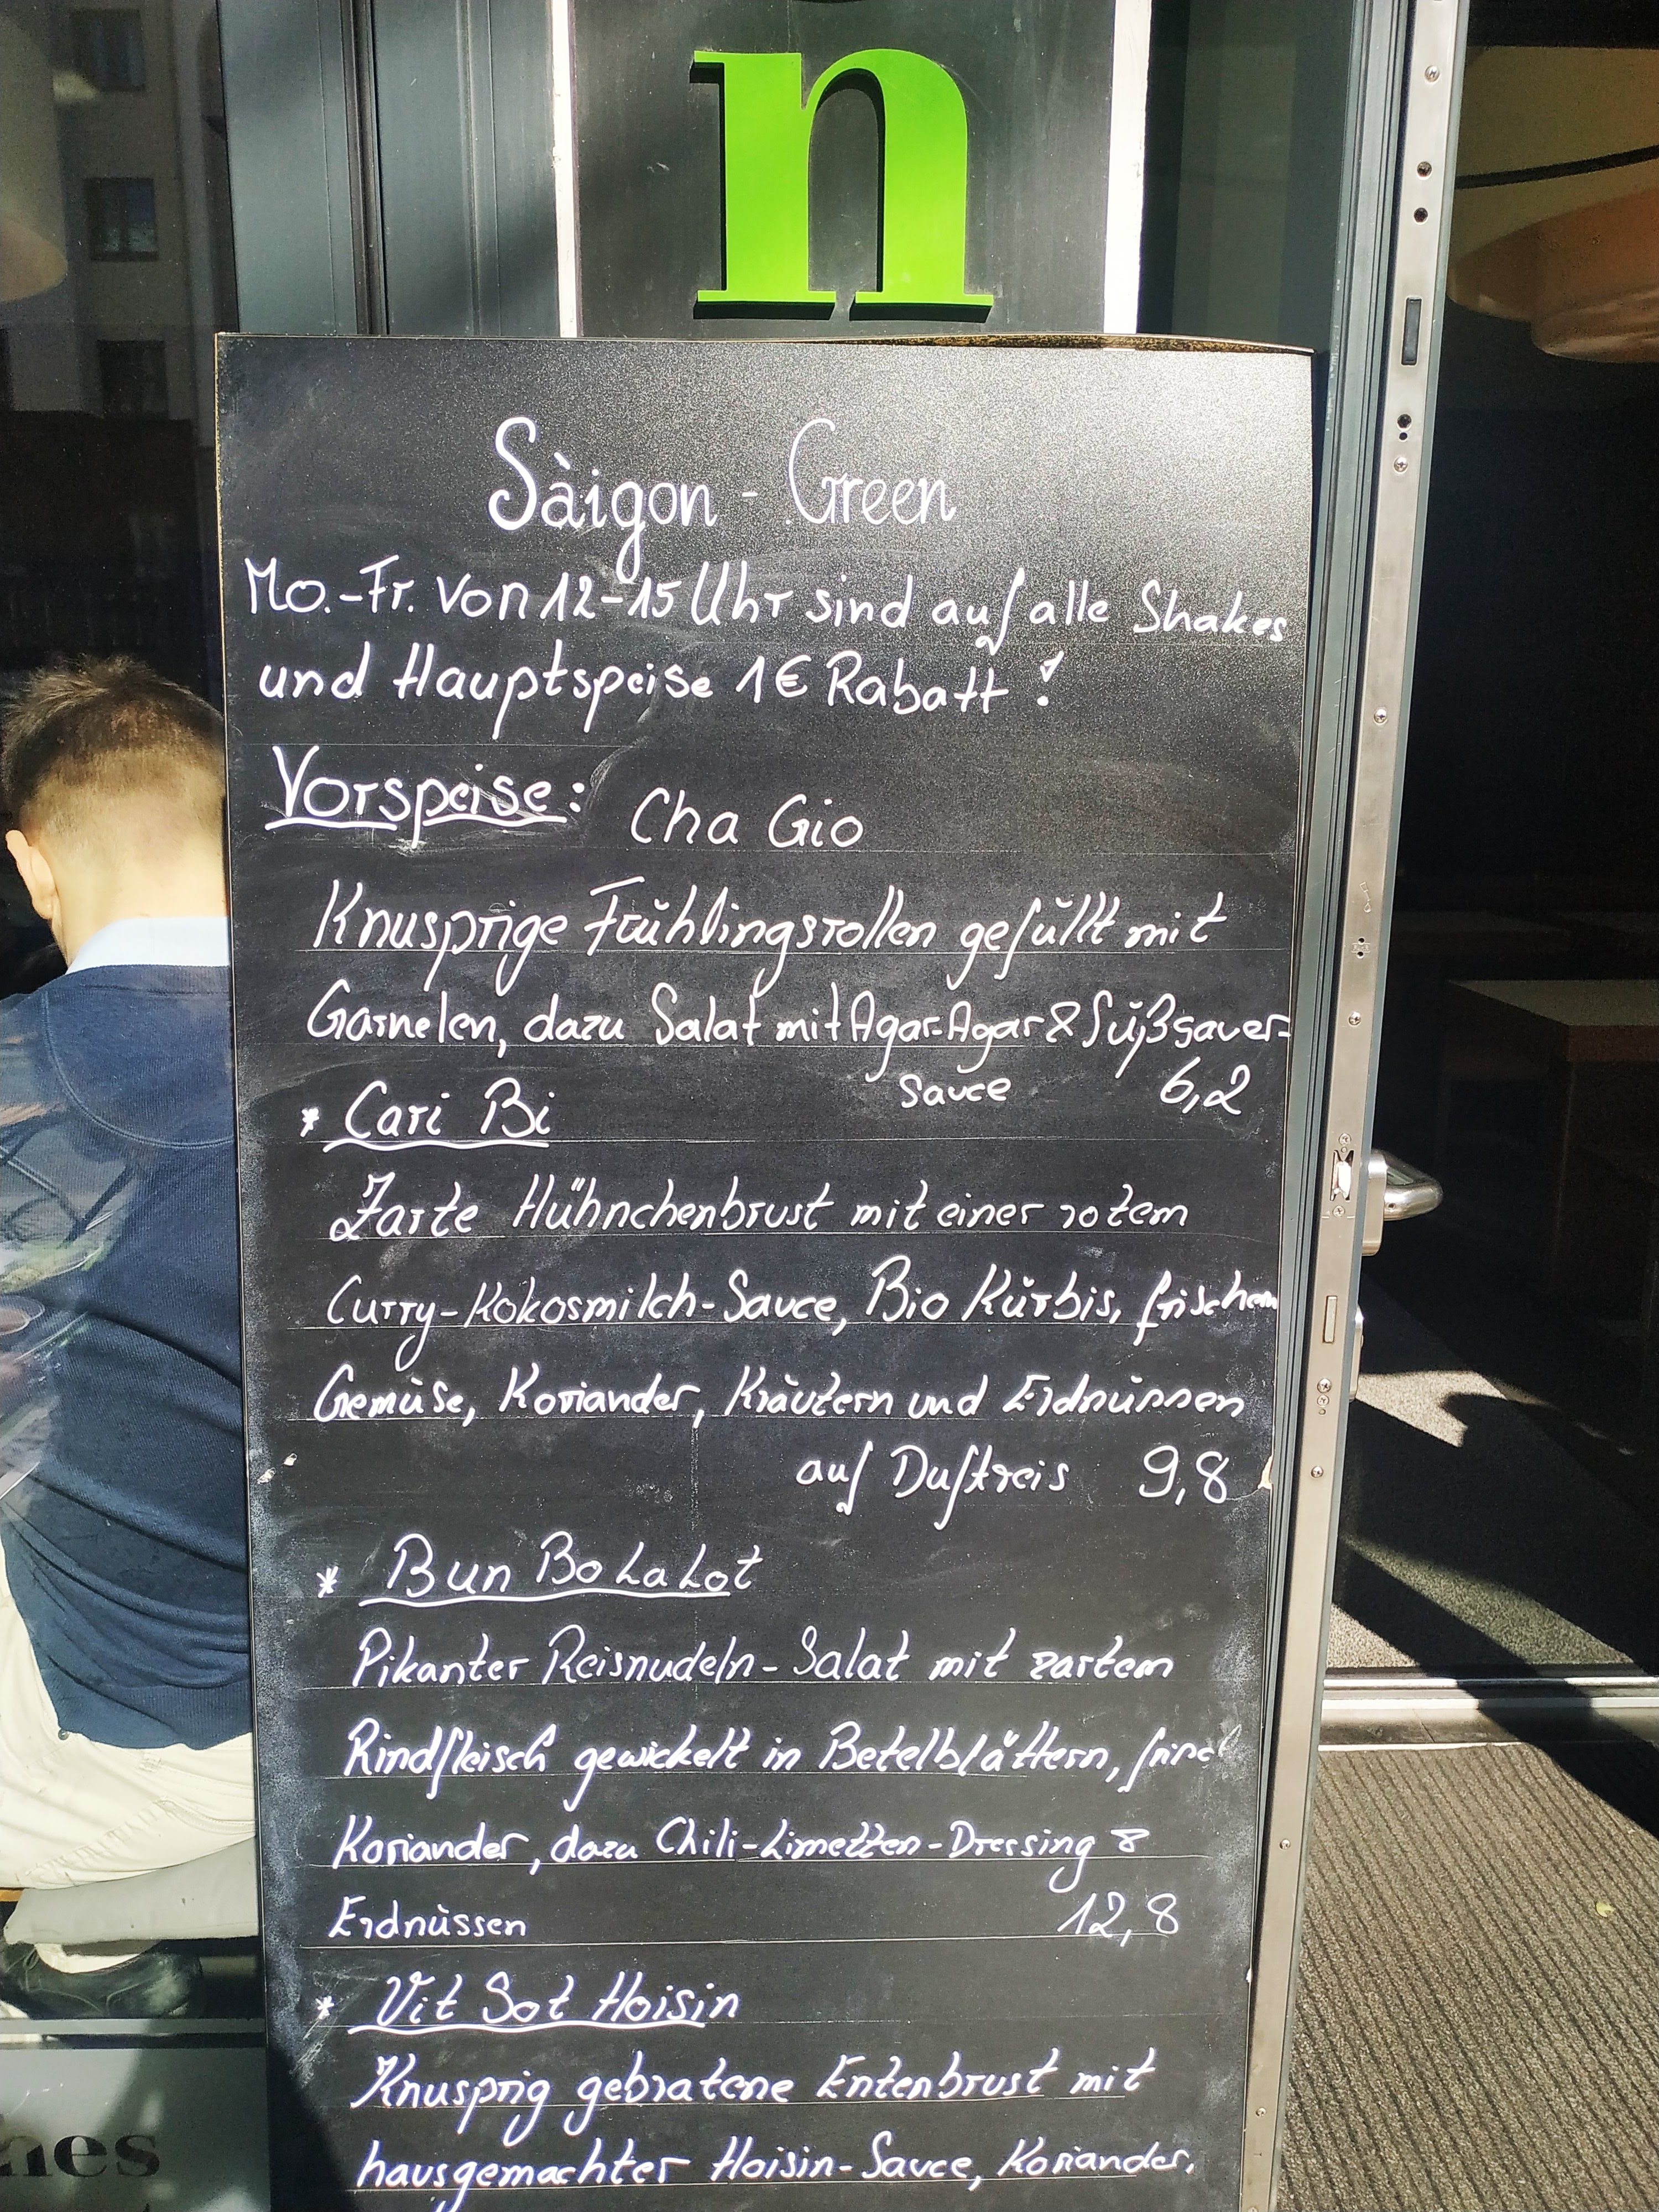 n
Sàigon - Green
Mo.-Fr. von 12-15 Uhr sind auf alle Shakes
und Hauptspeise 1€ Rabatt !
Vorspeise: Cha Gio
Knusprige Frühlingsrollen gefüllt mit
Garnelen, dazu Salat mit Agar-Agar & Süßsauer-
sauce 6,2
* Cari Bi
Zarte Hühnchenbrust mit einer rotem
Curry-Kokosmilch-Sauce, Bio Kürbis, frischem
Gemüse, Koriander, Kräutern und Erdnüssen
auf Duftreis 9,8
* Bun Bo La Lot
Pikanter Reisnudeln-Salat mit zartem
Rindfleisch gewickelt in Betelblättern,
Koriander, dazu Chili-Limetten-Dressing &
Erdnüssen 12,8
* Vit Sot Hoisin
Knusprig gebratene Entenbrust mit
hausgemachter Hoisin-Sauce, Koriander,
nes